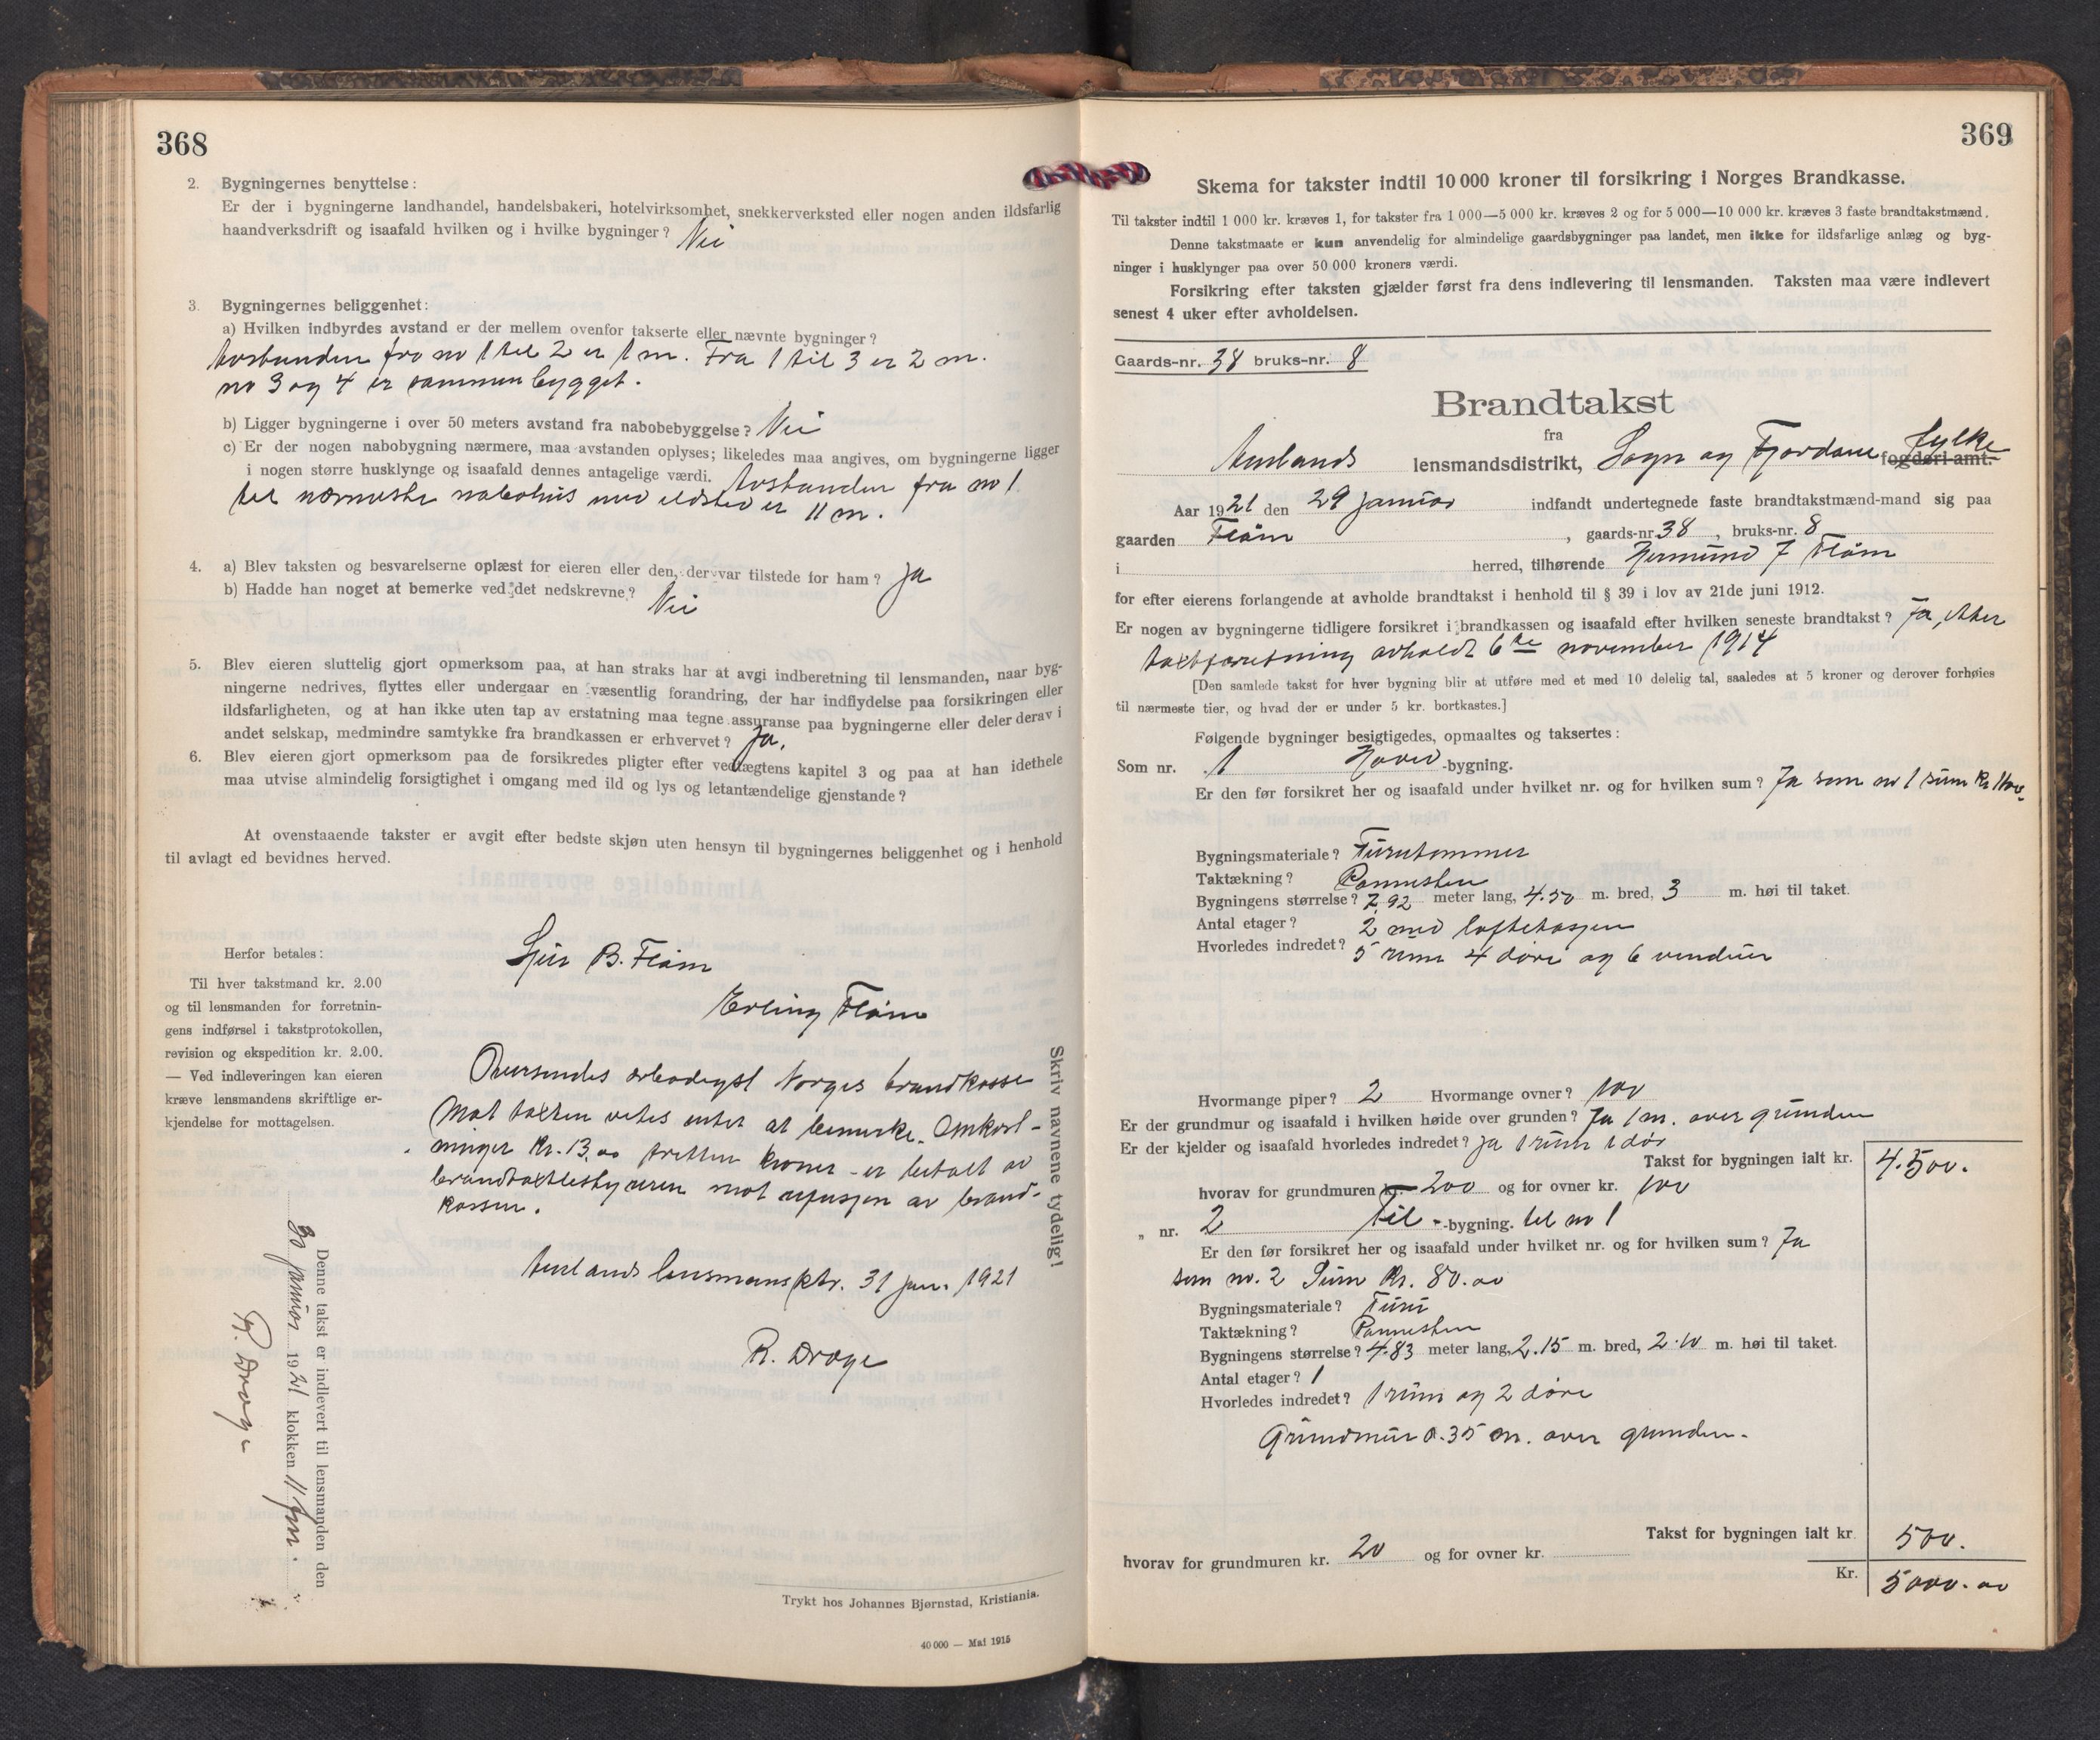 368
2. Bygningernes benyttelse:
Er der i bygningerne landhandel, handelsbakeri, hotelvirksomhet, snekkerverksted eller nogen anden ildsfarlig
haandverksdrift og isaafald hvilken og i hvilke bygninger? Nei
3. Bygningernes beliggenhet:
a) Hvilken indbyrdes avstand er der mellem ovenfor takserte eller nævnte bygninger?
Avstanden fra no 1 til 2 er 1 m. Fra 1 til 3 er 2 m.
no 3 og 4 er sammenbygget.
b) Ligger bygningerne i over 50 meters avstand fra nabobebyggelse? Nei
c) Er der nogen nabobygning nærmere, maa avstanden oplyses; likeledes maa angives, om bygningerne ligger
i nogen større husklynge og isaafald dennes antagelige værdi. Avstanden fra no 1
til nærmeste nabohus med ildsted er 11 m.
4. a) Blev taksten og besvarelserne oplæst for eieren eller den, der var tilstede for ham? Ja
b) Hadde han noget at bemerke ved det nedskrevne? Nei
5. Blev eieren sluttelig gjort opmerksom paa, at han straks har at avgi indberetning til lensmanden, naar byg-
ningerne nedrives, flyttes eller undergaar en væsentlig forandring, der har indflydelse paa forsikringen eller
ildsfarligheten, og at han ikke uten tap av erstatning maa tegne assuranse paa bygningerne eller deler derav i
andet selskap, medmindre samtykke fra brandkassen er erhvervet? Ja.
6. Blev eieren gjort opmerksom paa de forsikredes pligter efter vedtægtens kapitel 3 og paa at han idethele
maa utvise almindelig forsigtighet i omgang med ild og lys og letantændelige gjenstande?
At ovenstaaende takster er avgit efter bedste skjøn uten hensyn til bygningernes beliggenhet og i henhold
til avlagt ed bevidnes herved.
Herfor betales:
Til hver takstmand kr. 2.00
og til lensmanden for forretnin-
gens indførsel i takstprotokollen,
revision og ekspedition kr. 2.00.
— Ved indleveringen kan eieren
kræve lensmandens skriftlige er-
kjendelse for mottagelsen.
Sjur B. Flåm
Erling Flåm
Oversendes ærbødigst Norges brandkasse
Mot taxten vites intet at bemerke. Omkost-
ninger kr. 13,00 tretten kroner - er betalt av
brandtaxtbestyreren mot refusjon av brand-
kassen.
Aurlands lensmansktr. 31 jan. 1921
R. Drage
Denne takst er indlevert til lensmanden den
30 januar 1921 klokken 11 fm.
R. Drage
Skriv navnene tydelig!
Trykt hos Johannes Bjørnstad, Kristiania.
40 000 — Mai 1915
369
Skema for takster indtil 10 000 kroner til forsikring i Norges Brandkasse.
Til takster indtil 1 000 kr. kræves 1, for takster fra 1 000—5 000 kr. kræves 2 og for 5 000—10 000 kr. kræves 3 faste brandtakstmænd.
Denne takstmaate er kun anvendelig for almindelige gaardsbygninger paa landet, men ikke for ildsfarlige anlæg og byg-
ninger i husklynger paa over 50 000 kroners værdi.
Forsikring efter taksten gjælder først fra dens indlevering til lensmanden. Taksten maa være indlevert
senest 4 uker efter avholdelsen.
Gaards-nr. 38 bruks-nr. 8
Brandtakst
fra
Aurlands lensmandsdistrikt, Sogn og Fjordane fylke fogderi amt.
Aar 1921 den 29 januar indfandt undertegnede faste brandtakstmænd-mand sig paa
gaarden Flåm, gaards-nr. 38, bruks-nr. 8
i herred, tilhørende Hermund J Flåm
for efter eierens forlangende at avholde brandtakst i henhold til § 39 i lov av 21de juni 1912.
Er nogen av bygningerne tidligere forsikret i brandkassen og isaafald efter hvilken seneste brandtakst? Ja, efter
taxtforretning avholdt 6te november 1914
[Den samlede takst for hver bygning blir at utføre med et med 10 delelig tal, saaledes at 5 kroner og derover forhøies
til nærmeste tier, og hvad der er under 5 kr. bortkastes.]
Følgende bygninger besigtigedes, opmaaltes og taksertes:
Som nr. 1 Hoved-bygning.
Er den før forsikret her og isaafald under hvilket nr. og for hvilken sum? Ja som no 1 sum Kr 1100.
Bygningsmateriale? Furutømmer
Taktækning? Pannesten
Bygningens størrelse? 7,92 meter lang, 4.50 m. bred, 3 m. høi til taket.
Antal etager? 2 med loftetasjen
Hvorledes indredet? 5 rum 4 døre og 6 vinduer
Hvormange piper? 2 Hvormange ovner? 100
Er der grundmur og isaafald i hvilken høide over grunden? Ja 1 m. over grunden
Er der kjelder og isaafald hvorledes indredet? ja 1 rum 1 dør
Takst for bygningen ialt kr. 4.500.
hvorav for grundmuren kr. 200 og for ovner kr. 100
„ nr. 2 Til-bygning. til no 1
Er den før forsikret her og isaafald under hvilket nr. og for hvilken sum? Ja
som no. 2 Sum Kr. 80.00
Bygningsmateriale? Furu
Taktækning? Pannesten
Bygningens størrelse? 4.83 meter lang, 2.15 m. bred, 2.10 m. høi til taket.
Antal etager? 1
Hvorledes indredet? 1 rum og 2 døre
Grundmur 0.35 m. over grunden.
Takst for bygningen ialt kr. 500.
hvorav for grundmuren kr. 20 og for ovner kr.
Kr. 5000.00